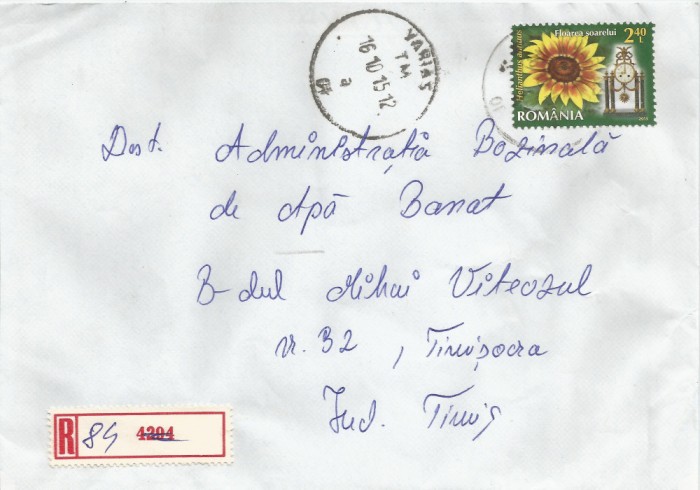 VARIAȘ
TM
16 10 15 12
a
04
Floarea soarelui
2,40
L
Helianthus annuus
ROMÂNIA
Dest. Administrația Bazinală
de Apă Banat
B-dul Mihai Viteazul
nr. 32, Timișoara
Jud. Timiș
R 84 4204